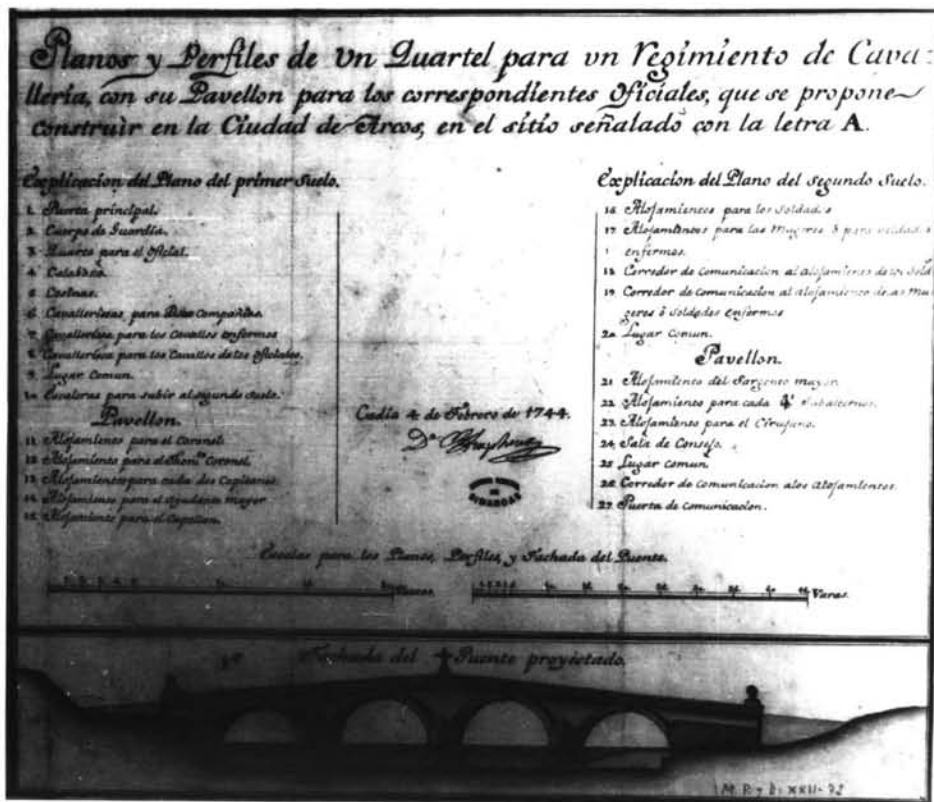 Planos y Perfiles de Vn Quartel para vn Regimiento de Cava=
lleria, con su Pavellon para los correspondientes Oficiales, que se propone
construir en la Ciudad de Arcos, en el sitio señalado con la letra A.
Explicacion del Plano del primer Suelo.
1. Puerta principal.
2. Cuerpo de Guardia.
3. Quarto para el Oficial.
4. Calabozo.
5. Cosinas.
6. Cavallerisas para Compañias.
7. Cavallerisa para los Cavallos enfermos
8. Cavallerisa para los Cavallos de los Oficiales.
9. Lugar Comun.
10. Escaleras para subir al segundo Suelo.
Pavellon.
11. Alojamiento para el Coronel.
12. Alojamiento para el Coronel.
13. Alojamientos para cada dos Capitanes.
14. Alojamiento para el Ayudante mayor
15. Alojamiento para el Capellan.
Cadiz 4 de Febrero de 1744.
Explicacion del Plano del segundo Suelo.
16. Alojamientos para los Soldados
17. Alojamientos para las Mugeres ô para soldados
enfermos.
18. Corredor de comunicacion al alojamiento de los Sold
19. Corredor de comunicacion al alojamiento de las Mu
geres ô Soldados enfermos
20. Lugar Comun.
Pavellon.
21. Alojamiento del Sargento mayor
22. Alojamiento para cada 4 Subalternos.
23. Alojamiento para el Cirujano.
24. Sala de Consejo.
25. Lugar comun.
26. Corredor de comunicacion alos alojamientos.
27. Puerta de comunicacion.
Escalas para los Planos, Perfiles, y Fachada del Puente.
Varas.
Varas.
Fachada del Puente proyectado.
M. P. y D. XXII-92